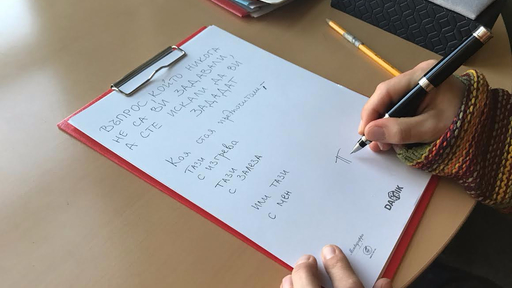 ВЪПРОС, КОЙТО НИКОГА
НЕ СА ВИ ЗАДАВАЛИ,
А СТЕ ИСКАЛИ ДА ВИ
ЗАДАДАТ
Коя стая предпочиташ,
тази
с изгрева
тази
с залеза
или тази
с мен
П
DARIK